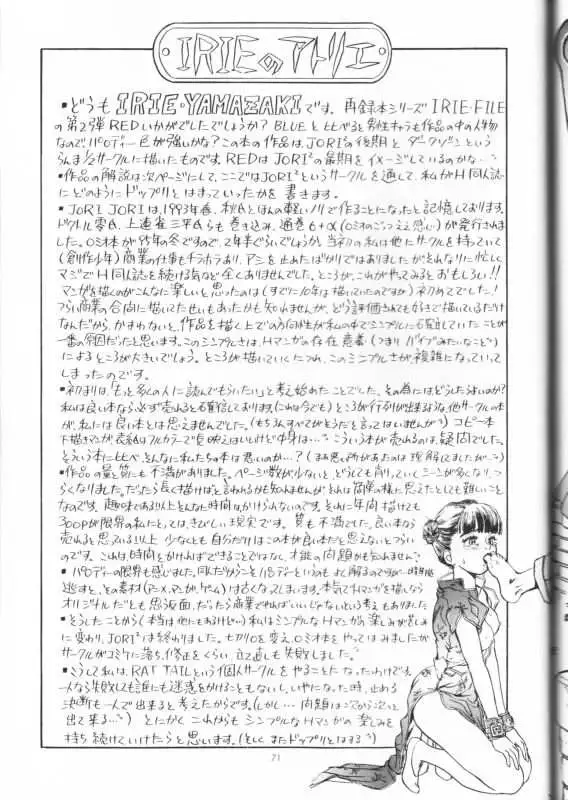 IRIEのアトリエ
▪どうも IRIE・YAMAZAKIです。再録本シリーズ IRIE・FILE
の第2弾REDいかがでしたでしょうか?BLUEと比べると男性キャラも作品の中の人物
なのでパロディー色が強いかな?この本の作品は、JORI²の後期と
らんま1/2サークルに描いたものです。REDはJORI²の最期をイメージしているのかな
▪作品の解説は次ページにして、ここではJORI²というサークルを通して、私がH同人誌
にどのようにドップリとはまっていったかを書きます。
▪JORI JORIは、1993年春、ほんの軽いノリで作ることになったと記憶しております。
ドクトル零氏、上連雀三平氏らも巻き込み、通巻6+α が発行されま
した。 が95年の冬ですので、2年半ぐらいでしょうか。当初の私は他にサークルを持っていて
(創作少年)商業の仕事もチラホラあり、アシを止めたばかりではありましたがそれなりに忙しく、
マジでH同人誌を続ける気など全くありませんでした。ところが、これがやってみるとおもしろい!!
マンガを描くのがこんなに楽しいと思ったのは(すでに10年は描いていたのですが)初めてでした。!
つらい商業の合間に描いてたせいもあったかも知れませんが、どう評価されても好きで描いているだけ
なんだから、かまわないと、作品を描く上での方向が私の中でシンプルに確立していたことが
一番の原因だったと思います。このシンプルさは、Hマンガの存在意義(つまりバイブみたいなこと)
によるところが大きいでしょう。ところが描いていくにつれ、このシンプルさが、複雑になっていって
しまったのです。
▪初まりは、「もっと多くの人に読んでもらいたい」と考え始めたことでした。その為には、どうしたらよいか?
私は良い本なら必ず売れると確信しております(これは今でも)ところが行列が出来るような、他サークルの本
が、私には良い本とは思えませんでした。(もちろんすべてがそうだと言ってはいませんが)コピー本
下描きマンガ、表紙はフルカラーで見映えはいいけど中身は…こういう本が売れるのは、疑問でした。
そういう本に比べ、そんなに私たちの本は悪いのか…?(まぁ悪い所があったのは理解してましたが…)
▪作品の量と質にも不満がありました。ページ数が少ないと、どうしても削っていくシーンが多くなり、つ
らくなりました。だったら長く描けばと言われるかも知れませんが、それは商業の様に思えたとしても難しいこと
なのです。趣味である以上そんなに時間はかけられないのです。それに年間描けても
300Pが限界の私にとっては、きびしい現実です。質も不満でした。良い本なら
売れると思っている以上少なくとも自分だけはこの本が良い本だと思えないとつらい
のです。これは、時間をかければできることではなく、才能の問題かも知れません?
▪パロディーの限界も感じました。同人だからこそパロディーというのもよく解るのですが
逃すと、その素材(アニメ、マンガ、ゲーム)は古くなってしまいます。本気でHマンガを描くなら
オリジナルだとも思う反面、だったら商業でやればいいじゃないという考えもありました
▪そうしたことから(本当は他にもあるけど…)私はシンプルなHマンガが、楽しみが苦しみ
に変わり、JORI²は終わりました。七刀りロを変え、ロミオ本をやってはみましたが
サークルがコミケに落ち、修正をくらい、立て直しも失敗しました。
▪こうして私は、RAT TAILという個人サークルをやることになったわけです。
一人なら失敗しても誰にも迷惑をかけることもないし、いやになった時、止める
決断も一人で出来ると考えたからです。(しかし…問題は次から次へと
出て来る…)とにかくこれからもシンプルなHマンガの楽しみを
持ち続けていけたらと思います。(そしてまたドップリとはまる)
71